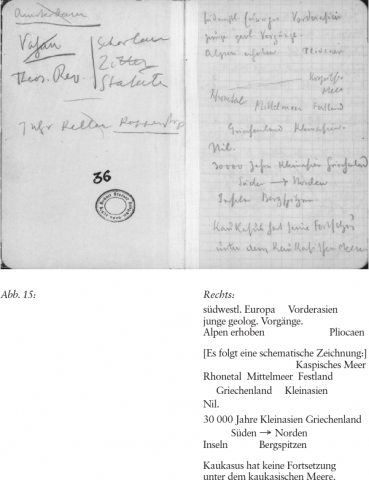 Amsterdam
Vafan
Theos. Rev
7 Uhr Keller
36
Alpen erhoben Pliocaen
Kaspisches
Meer
Rhonetal Mittelmeer Festland
Griechenland Kleinasien.
Nil.
30000 Jahre Kleinasien Griechenland
Süden → Norden
Inseln Bergspitzen
Kaukasus hat keine Fortsetzg
unter dem Kaukasischen Meere
Abb. 15:
Rechts:
südwestl. Europa Vorderasien
junge geolog. Vorgänge.
Alpen erhoben Pliocaen
[Es folgt eine schematische Zeichnung:]
Kaspisches Meer
Rhonetal Mittelmeer Festland
Griechenland Kleinasien
Nil.
30 000 Jahre Kleinasien Griechenland
Süden → Norden
Inseln Bergspitzen
Kaukasus hat keine Fortsetzung
unter dem kaukasischen Meere.